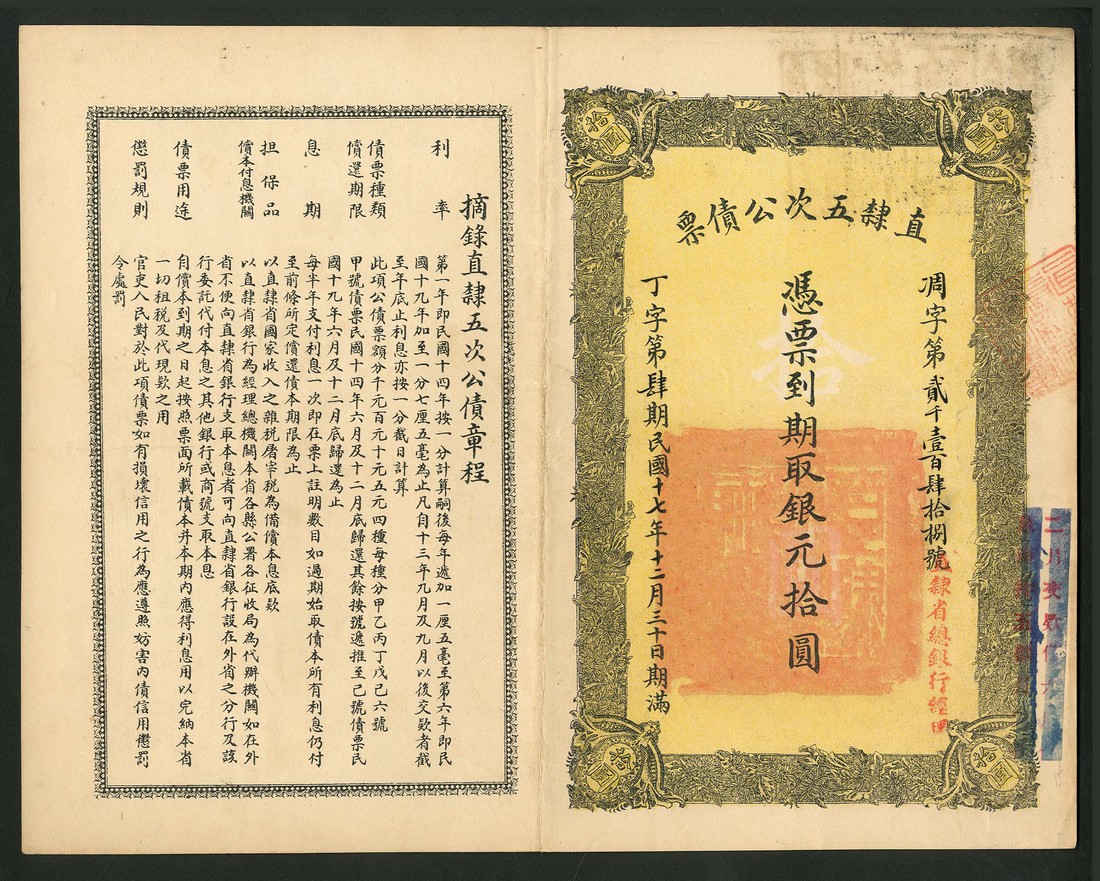 直隸五次公債票
凋字第貳千壹百肆拾捌號
憑票到期取銀元拾圓
丁字第肆期民國十七年十二月三十日期滿
拾圓
拾圓
拾圓
拾圓
隸省總銀行經
摘錄直隸五次公債章程
利率
第一年即民國十四年按一分計算嗣後每年遞加一厘五毫至第六年即民
國十九年加至一分七厘五毫為止凡自十三年九月及九月以後交款者截
至年底止利息亦按一分截日計算
債票種類
此項公債票額分千元百元十元五元四種每種分甲乙丙丁戊己六號
償還期限
甲號債票民國十四年六月及十二月底歸還其餘按號遞推至己號債票民
國十九年六月及十二月底歸還為止
息期
每半年支付利息一次即在票上註明數目如過期始取債本所有利息仍付
至前條所定償還債本期限為止
担保品
以直隸省國家收入之雜稅屠宰稅為備償本息底款
償本付息機關
以直隸省銀行為經理總機關本省各縣公署各征收局為代辦機關如在外
省不便向直隸省銀行支取本息者可向直隸省銀行設在外省之分行及該
行委託代付本息之其他銀行或商號支取本息
債票用途
自償本到期之日起按照票面所載債本并本期內應得利息用以完納本省
一切租稅及代現款之用
懲罰規則
官吏人民對於此項債票如有損壞信用之行為應遵照妨害內債信用懲罰
令處罰